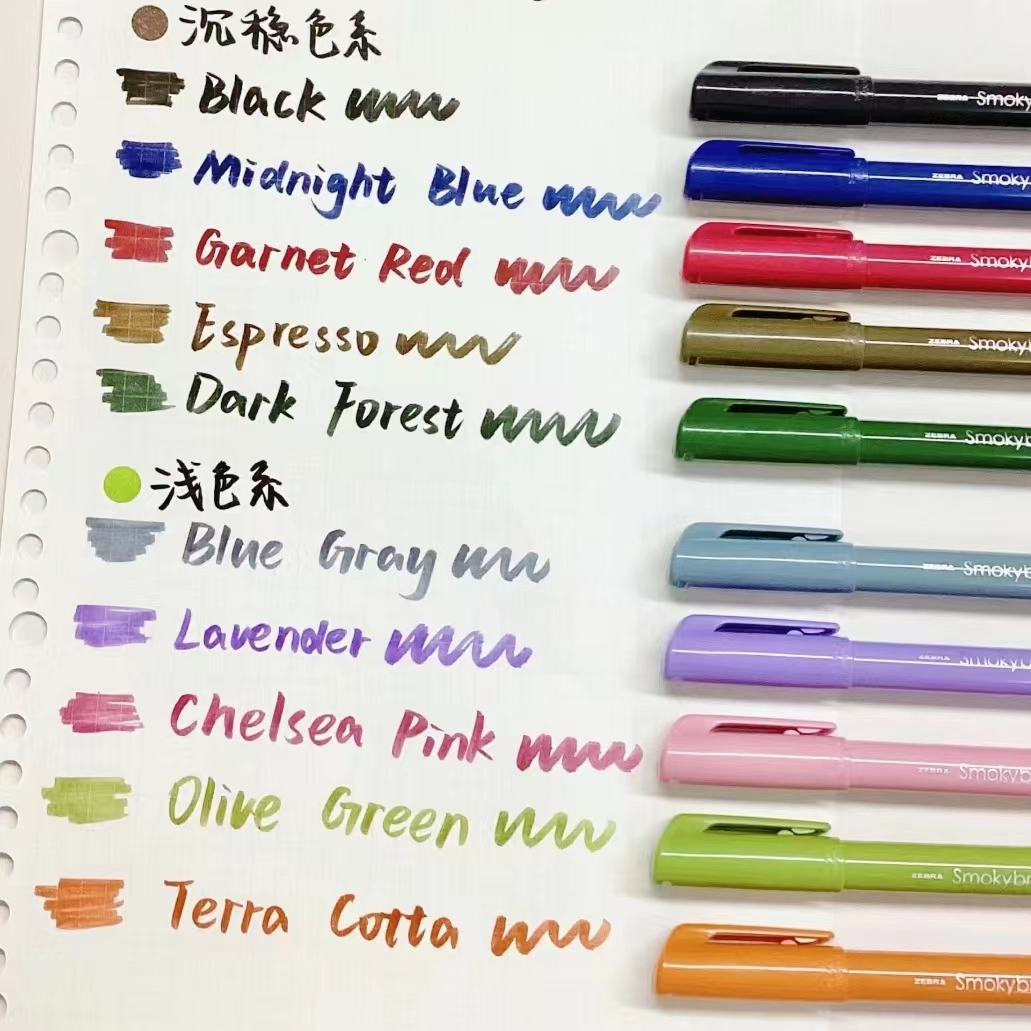 沉稳色系
Black
ZEBRA Smoky
Midnight Blue
ZEBRA Smoky
Garnet Red
ZEBRA Smokyb
Espresso
ZEBRA Smokyb
Dark Forest
ZEBRA Smokyb
浅色系
Blue Gray
ZEBRA Smokyb
Lavender
ZEBRA Smokyb
Chelsea Pink
ZEBRA Smokyb
Olive Green
ZEBRA Smokybr
Terra Cotta
ZEBRA Smokybr